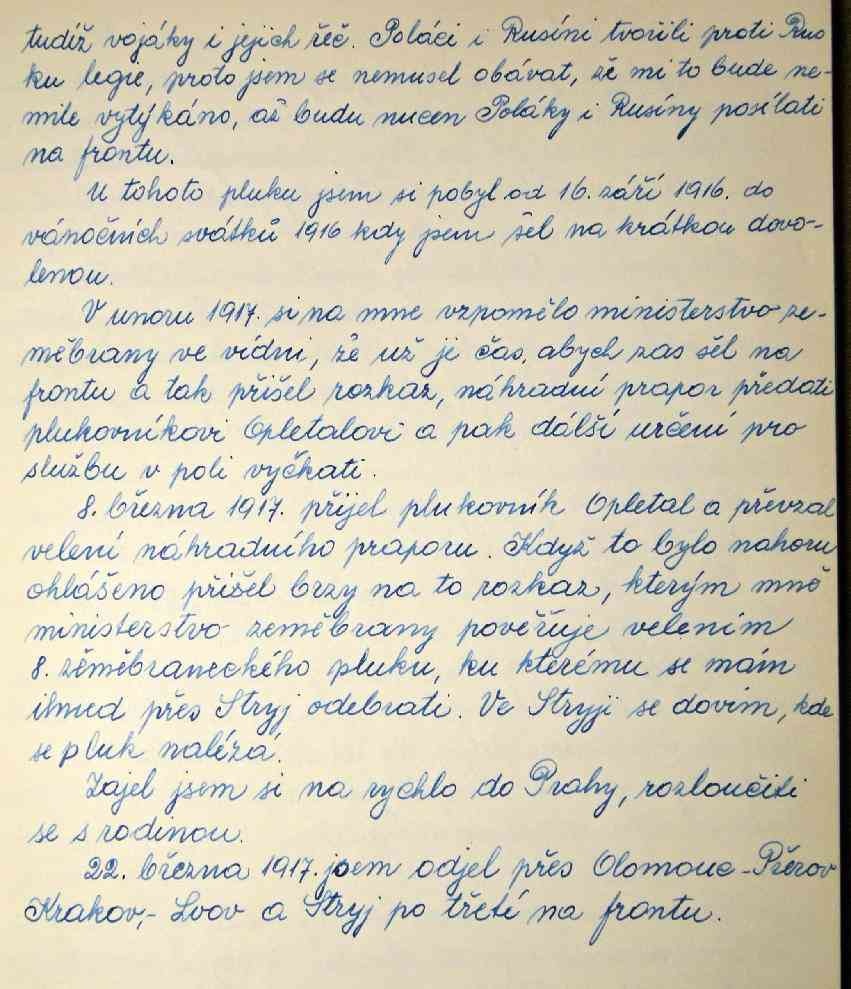 tudíž vojáky i jejich řeč. Poláci i Rusíni tvořili proti Rus
ku legie, proto jsem se nemusel obávat, že mi to bude ne-
mile vytýkáno, až budu nucen Poláky i Rusíny posílati
na frontu.
U tohoto pluku jsem si pobyl od 16. září 1916. do
vánočních svátků 1916 kdy jsem šel na krátkou dovo-
lenou.
V unoru 1917. si na mne vzpomělo ministerstvo ze-
měbrany ve vídni, že už je čas, abych zas šel na
frontu a tak přišel rozkaz, náhradní prapor předati
plukovníkovi Opletalovi a pak dálší určení pro
službu v poli vyčkati.
8. března 1917. přijel plukovník Opletal a převzal
velení náhradního praporu. Když to bylo nahoru
ohlášeno přišel brzy na to rozkaz, kterým mně
ministerstvo zeměbrany pověřuje velením
8. zěměbraneckého pluku, ku kterému se mám
ihned přes Stryj odebrati. Ve Stryji se dovím, kde
se pluk nalézá.
Zajel jsem si na rychlo do Prahy, rozloučiti
se s rodinou.
22. března 1917. jsem odjel přes Olomouc-Přerov
Krakov,- Lvov a Stryj po třetí na frontu.